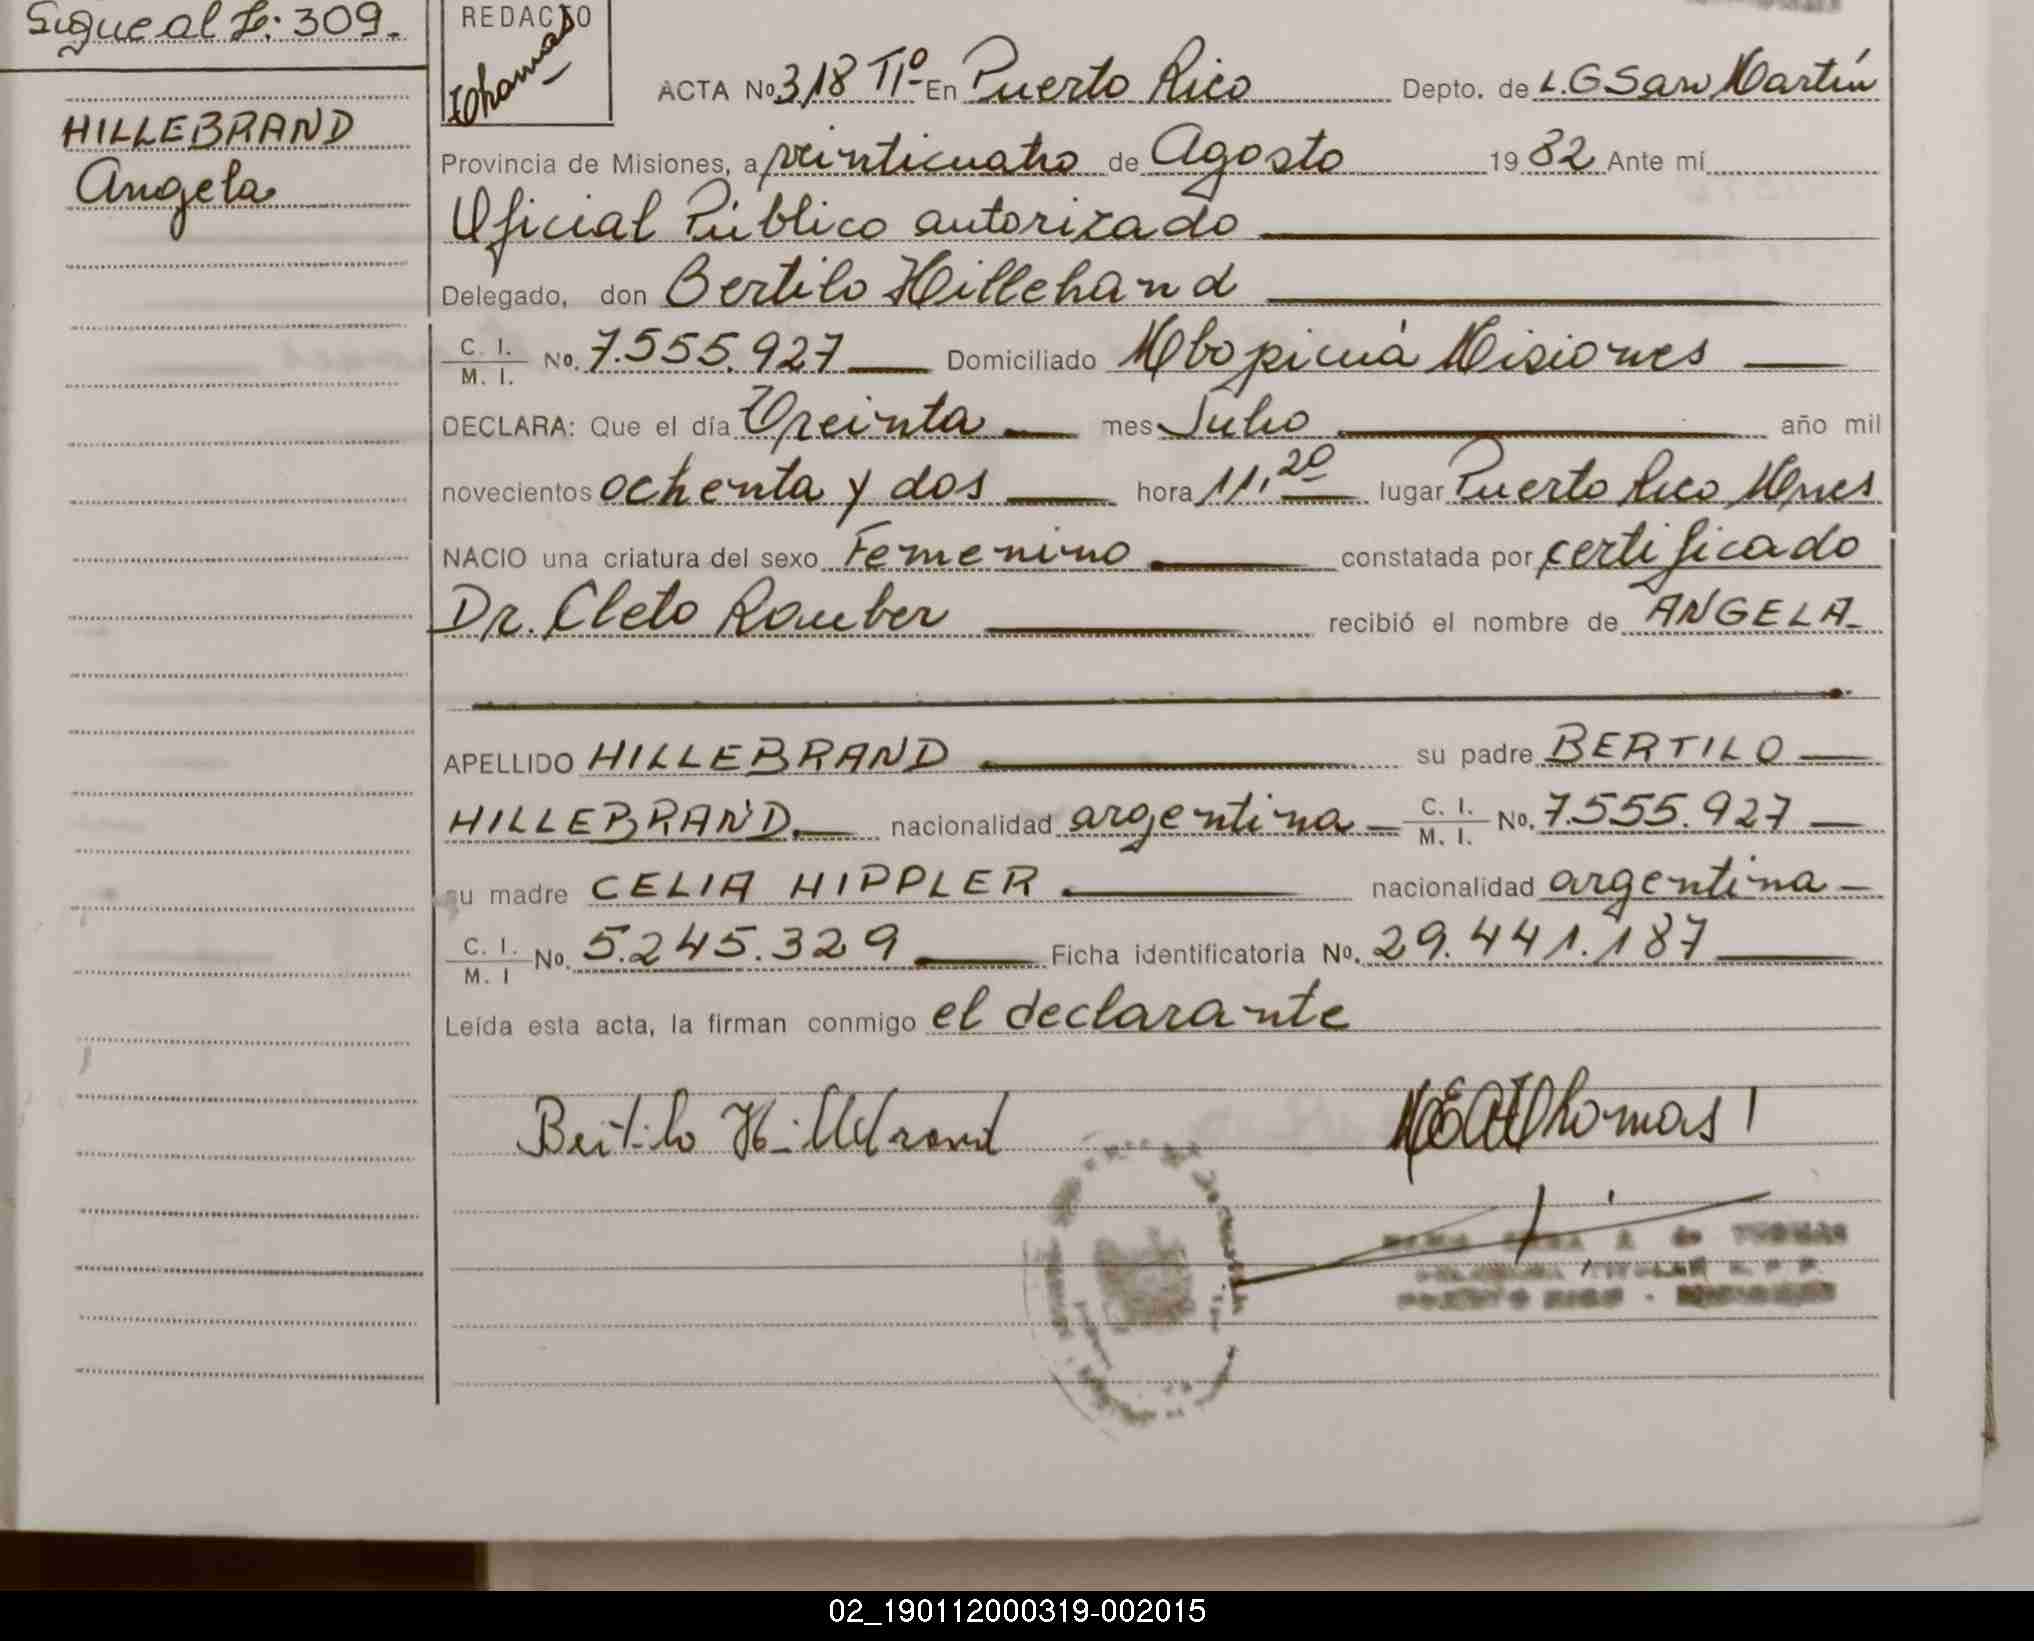 Sigue al F: 309.
REDACTO
Thomas
HILLEBRAND
Angela
ACTA No 318 IIº En Puerto Rico Depto. de L.G San Martín
Provincia de Misiones, a veinticuatro de Agosto 1982 Ante mí
Oficial Público autorizado
Delegado, don Bertilo Hillebrand
C. I.
M. I. No. 7.555.927 Domiciliado Mbopicuá Misiones
DECLARA: Que el día Treinta mes Julio año mil
novecientos ochenta y dos hora 11,20 lugar Puerto Rico Mnes
NACIO una criatura del sexo Femenino constatada por certificado
Dr. Cleto Rauber recibió el nombre de ANGELA
APELLIDO HILLEBRAND su padre BERTILO
HILLEBRAND nacionalidad argentina C. I.
M. I. No. 7.555.927
su madre CELIA HIPPLER nacionalidad argentina
C. I.
M. I No. 5.245.329 Ficha identificatoria No. 29.441.187
Leída esta acta, la firman conmigo el declarante
Bertilo Hillebrand
Thomas
de THOMAS
TITULAR
PUERTO RICO - MISIONES
02_190112000319-002015